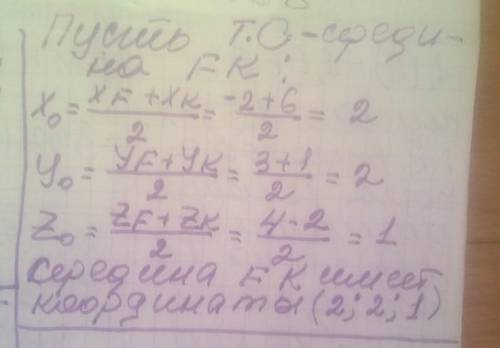 Пусть т.О-среди-
на FK:
x₀ = (xF + xK)/2 = (-2+6)/2 = 2
y₀ = (yF + yK)/2 = (3+1)/2 = 2
z₀ = (zF + zK)/2 = (4-2)/2 = 1
середина FK имеет
координаты (2; 2; 1)